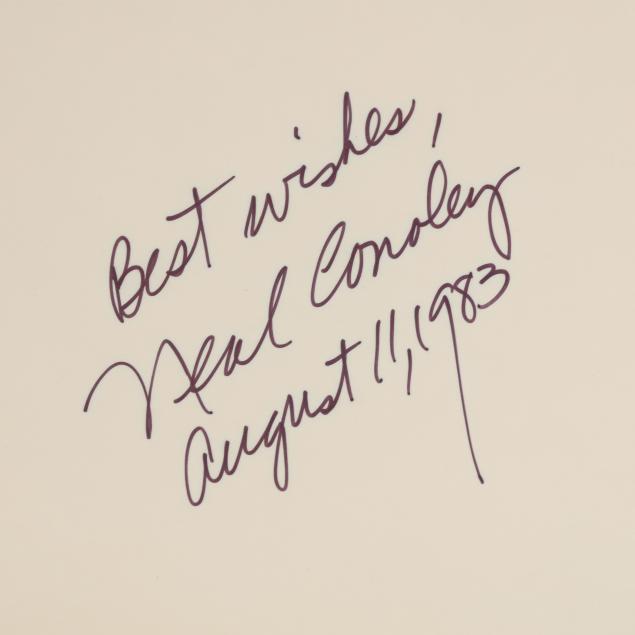 Best wishes,
Neal Conoley
August 11, 1983